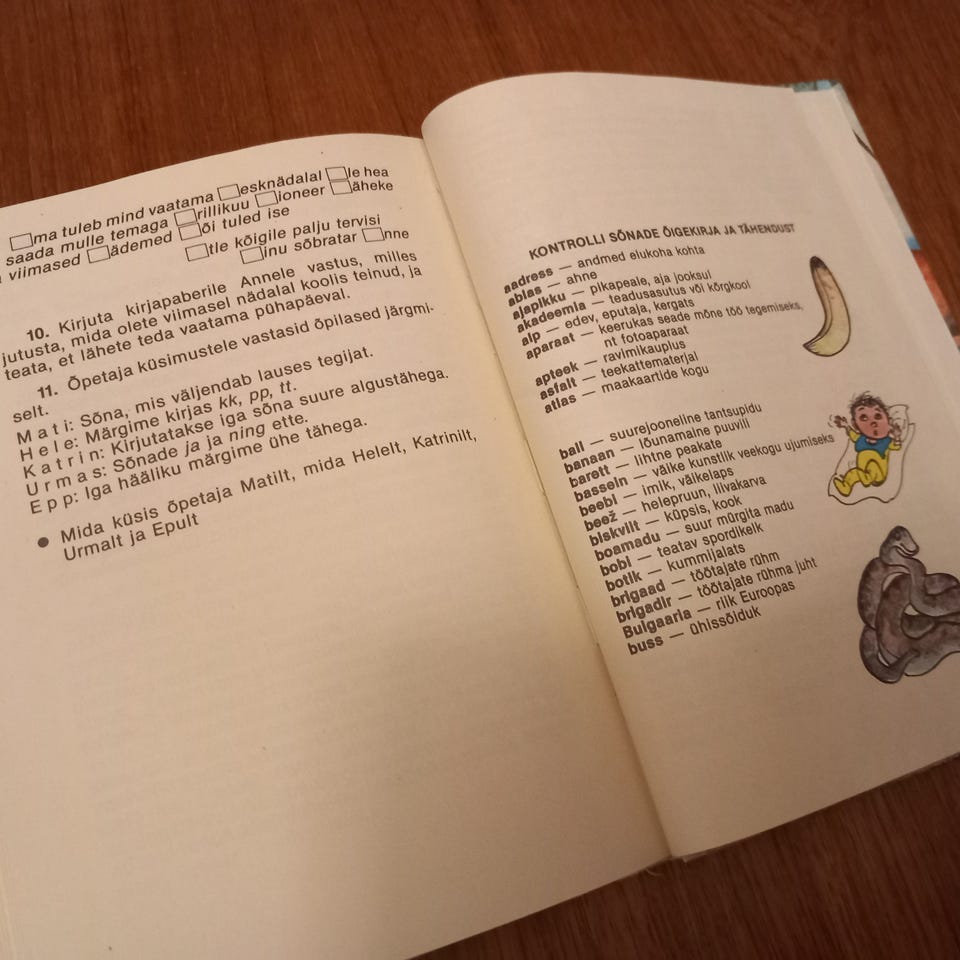 □ma tuleb mind vaatama □esknädalal □le hea
saada mulle temaga □rillikuu □ioneer □äheke
viimased □ädemed □õi tuled ise
□tle kõigile palju tervisi
□inu sõbratar □nne
10. Kirjuta kirjapaberile Annele vastus, milles
jutusta, mida olete viimasel nädalal koolis teinud, ja
teata, et lähete teda vaatama pühapäeval.
11. Õpetaja küsimustele vastasid õpilased järgmi-
selt.
Mati: Sõna, mis väljendab lauses tegijat.
Hele: Märgime kirjas kk, pp, tt.
Katrin: Kirjutatakse iga sõna suure algustähega.
Urmas: Sõnade ja ja ning ette.
Epp: Iga hääliku märgime ühe tähega.
● Mida küsis õpetaja Matilt, mida Helelt, Katrinilt,
Urmalt ja Epult
KONTROLLI SÕNADE ÕIGEKIRJA JA TÄHENDUST
aadress — andmed elukoha kohta
ablas — ahne
ajapikku — pikapeale, aja jooksul
akadeemia — teadusasutus või kõrgkool
alp — edev, eputaja, kergats
aparaat — keerukas seade mõne töö tegemiseks,
nt fotoaparaat
apteek — ravimikauplus
asfalt — teekattematerjal
atlas — maakaartide kogu
ball — suurejooneline tantsupidu
banaan — lõunamaine puuvili
barett — lihtne peakate
bassein — väike kunstlik veekogu ujumiseks
beebi — imik, väikelaps
beež — helepruun, liivakarva
biskviit — küpsis, kook
boamadu — suur mürgita madu
bobi — teatav spordikelk
botik — kummijalats
brigaad — töötajate rühm
brigadir — töötajate rühma juht
Bulgaaria — riik Euroopas
buss — ühissõiduk